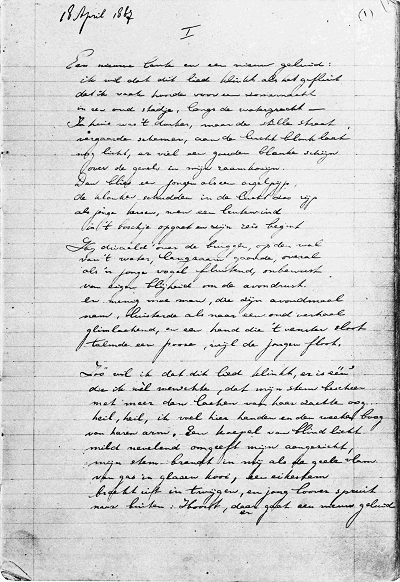 18 April 1887
(1)
I
Een nieuwe lente en een nieuw geluid:
ik wil dat dit lied klinkt als het gefluit
dat ik vaak hoorde voor een zomernacht
in een oud stadje, langs de watergracht —
In huis was 't donker, maar de stille straat
vergaarde schemer, aan de lucht blonk laat
nog licht, er viel een gouden blanke schijn
over de gevels in mijn raamkozijn.
Dan blies een jongen als een orgelpijp,
de klanken schudden in de lucht zoo rijp
als jonge kersen, wen een lentewind
in 't boschje opgaat en zijn reis begint
Hij dwaald' over de bruggen, op den wal
van 't water, langzaam gaande, overal
als 'n jonge vogel fluitend, onbewust
van eigen blijheid om de avondrust
En menig moe man, die zijn avondmaal
nam, luisterde als naar een oud verhaal
glimlachend, en een hand die 't venster sloot
talmde een pooze, wijl de jongen floot.
Zóó wil ik dat dit lied klinkt, er is één
die ik wèl wenschte, dat mijn stem bescheen
met meer dan lachen van haar zachte oog...
heil, heil, ik voel hier handen en den weeken boog
van haren arm. Een koepel van blind licht
mild nevelend omgeeft mijn aangezicht,
mijn stem brandt in mij als de geele vlam
van gas in glazen kooi, een eikenstam
breekt uit in twijgen, en jong loover spruit
naar buiten: Hoort, er gaat een nieuw geluid